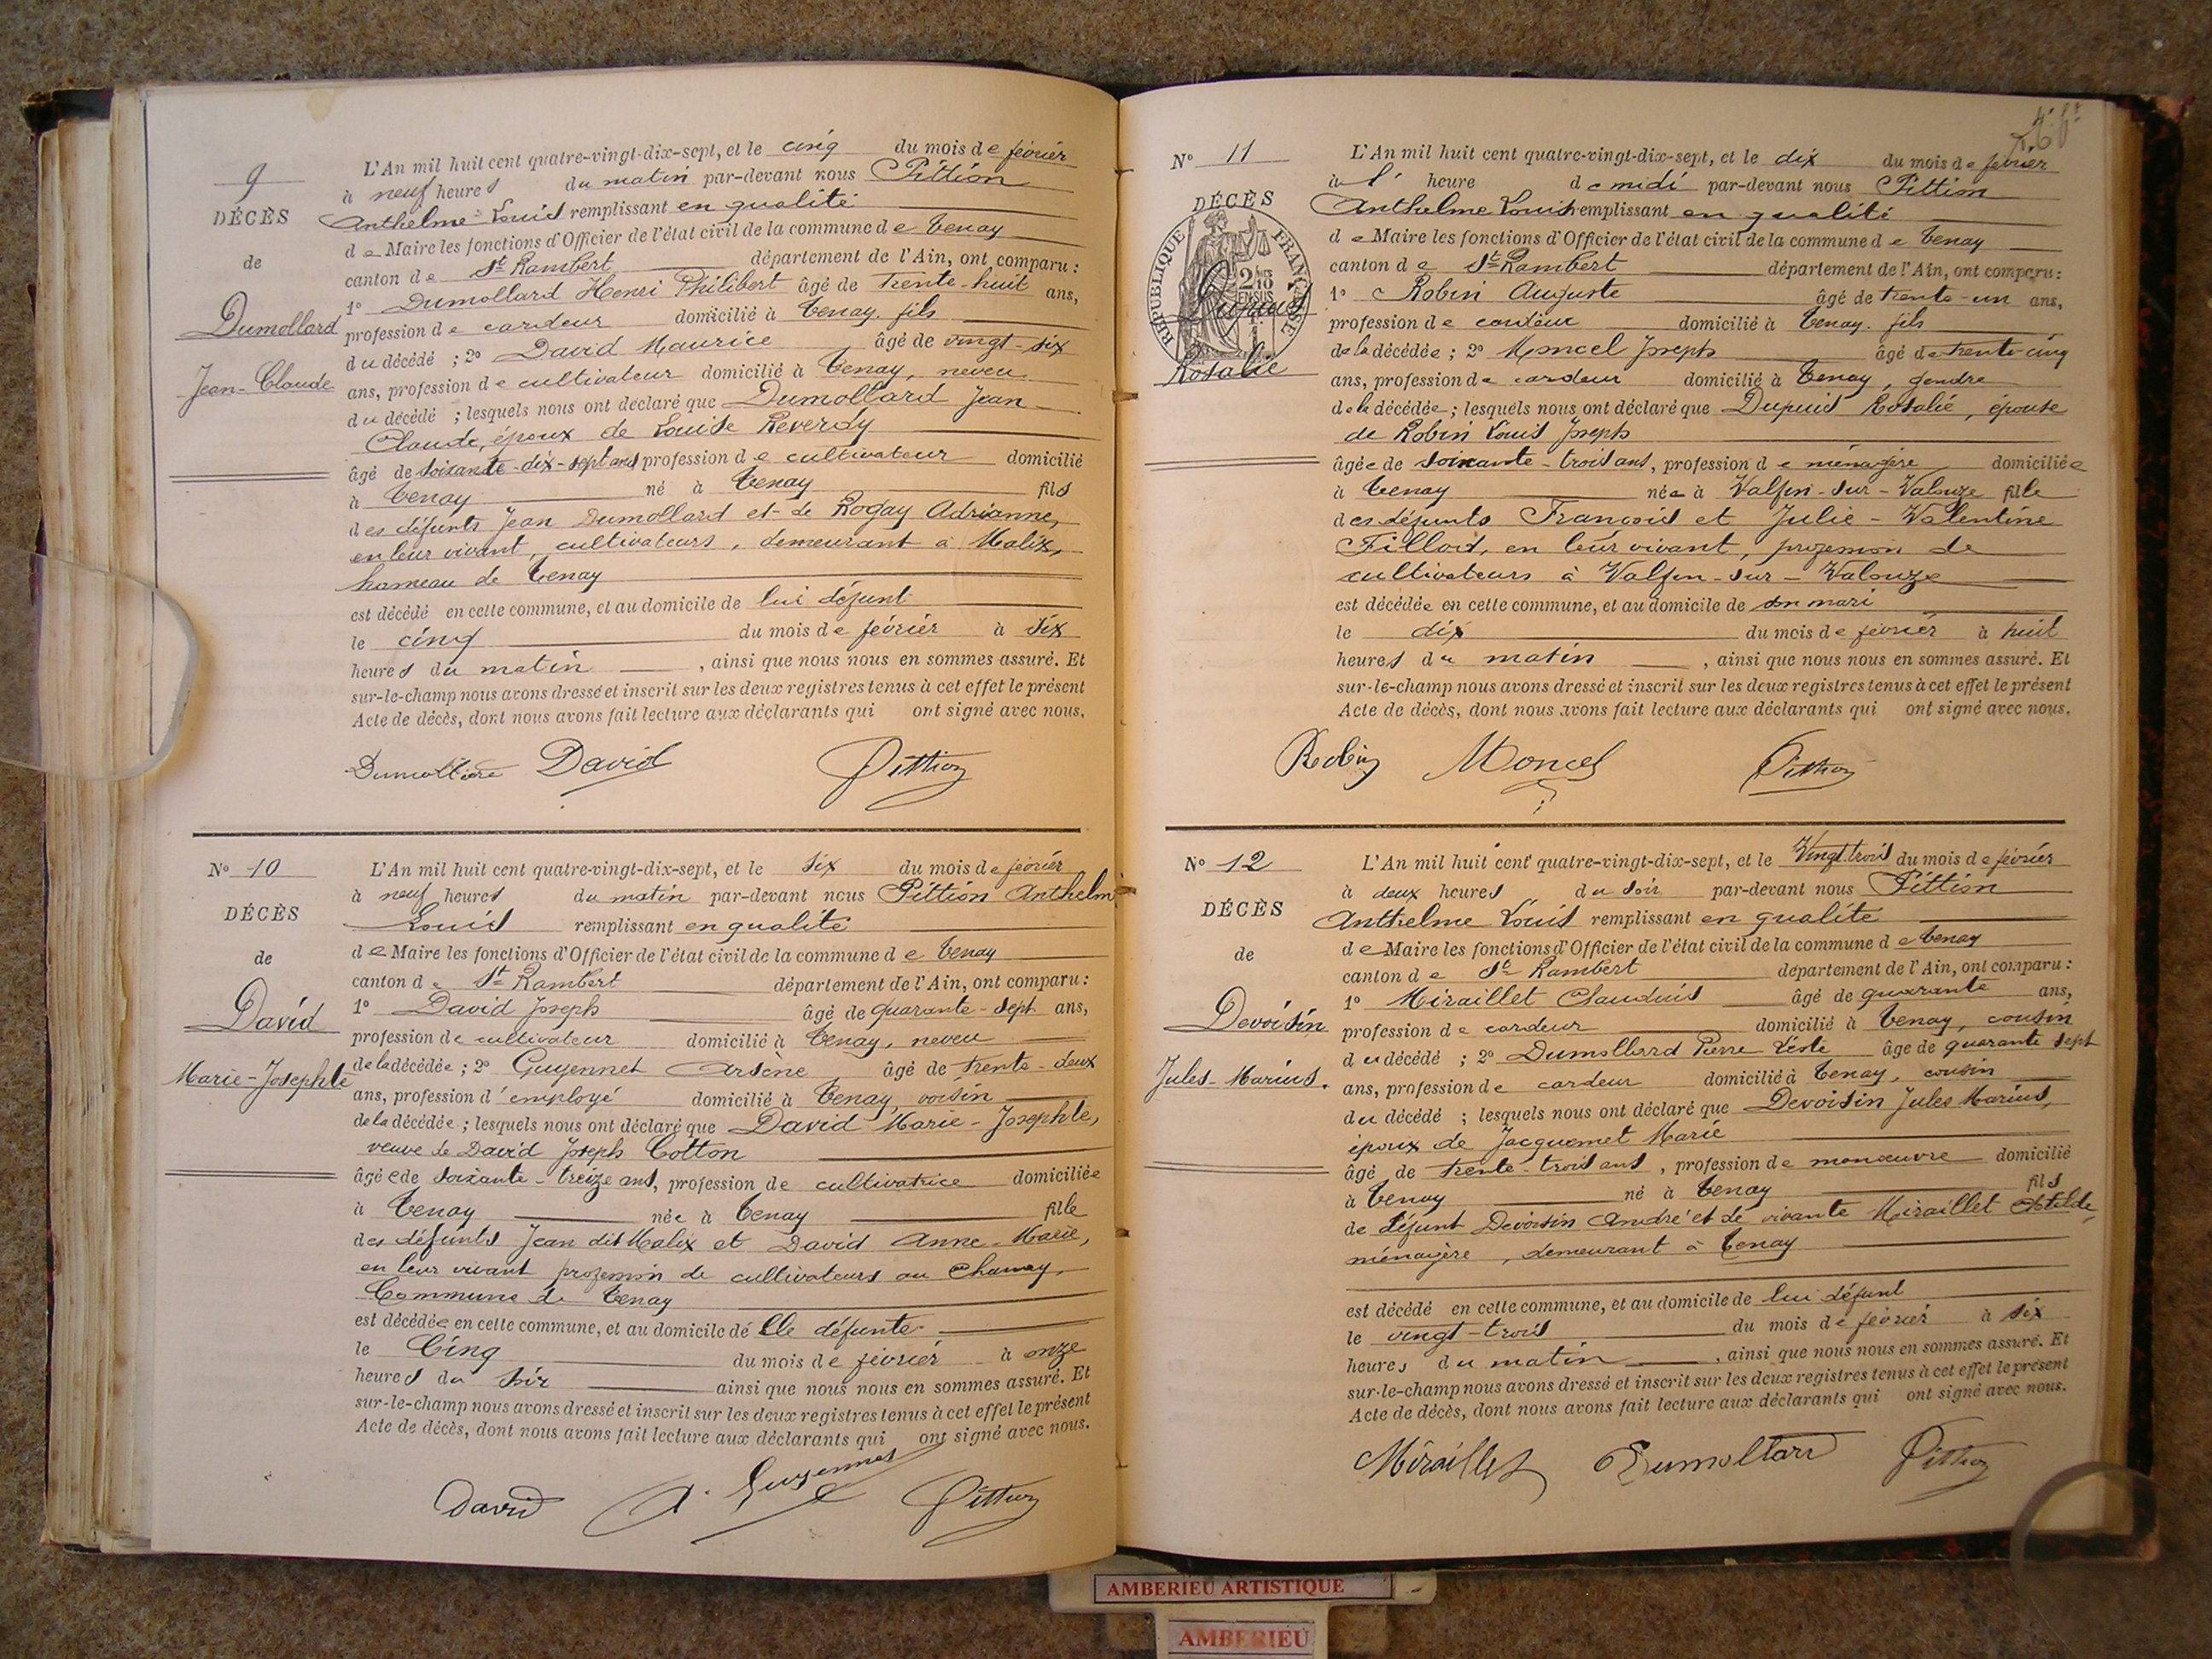 9
DÉCÈS
de
Dumollard
Jean-Claude
L'An mil huit cent quatre-vingt-dix-sept, et le cinq du mois de février
à neuf heures du matin par-devant nous Pittion
Anthelme Louis remplissant en qualité
de Maire les fonctions d'Officier de l'état civil de la commune de Tenay
canton de St Rambert département de l'Ain, ont comparu :
1° Dumollard Henri Philibert âgé de trente-huit ans,
profession de cardeur domicilié à Tenay, fils
du décédé ; 2° David Maurice âgé de vingt-six
ans, profession de cultivateur domicilié à Tenay, neveu
du décédé ; lesquels nous ont déclaré que Dumollard Jean
Claude, époux de Louise Reverdy
âgé de soixante-dix-sept ans profession de cultivateur domicilié
à Tenay né à Tenay fils
des défunts Jean Dumollard et de Rogay Adrianne,
en leur vivant, cultivateurs, demeurant à Malix,
hameau de Tenay
est décédé en cette commune, et au domicile de lui défunt
le cinq du mois de février à six
heures du matin , ainsi que nous nous en sommes assuré. Et
sur-le-champ nous avons dressé et inscrit sur les deux registres tenus à cet effet le présent
Acte de décès, dont nous avons fait lecture aux déclarants qui ont signé avec nous.
David Pittion
N° 10
DÉCÈS
de
David
Marie-Josephte
L'An mil huit cent quatre-vingt-dix-sept, et le six du mois de février
à neuf heures du matin par-devant nous Pittion Anthelm
Louis remplissant en qualité
de Maire les fonctions d'Officier de l'état civil de la commune de Tenay
canton de St Rambert département de l'Ain, ont comparu :
1° David Joseph âgé de quarante-sept ans,
profession de cultivateur domicilié à Tenay, neveu
de la décédée ; 2° Guyennet Arsène âgé de trente-deux
ans, profession d'employé domicilié à Tenay, voisin
de la décédée ; lesquels nous ont déclaré que David Marie-Josephte,
veuve de David Joseph Cotton
âgée de soixante-treize ans, profession de cultivatrice domiciliée
à Tenay née à Tenay fille
des défunts Jean dit Malix et David Anne-Marie,
en leur vivant profession de cultivateurs au
Commune de Tenay
est décédée en cette commune, et au domicile de Elle défunte
le Cinq du mois de février à onze
heures du soir ainsi que nous nous en sommes assuré. Et
sur-le-champ nous avons dressé et inscrit sur les deux registres tenus à cet effet le présent
Acte de décès, dont nous avons fait lecture aux déclarants qui ont signé avec nous.
David A. Guyennet Pittion
N° 11
DÉCÈS
RÉPUBLIQUE FRANÇAISE
Dupuis
Rosalie
L'An mil huit cent quatre-vingt-dix-sept, et le dix du mois de février
à l' heure de midi par-devant nous Pittion
Anthelme Louis remplissant en qualité
de Maire les fonctions d'Officier de l'état civil de la commune de Tenay
canton de St Rambert département de l'Ain, ont comparu :
1° Robin Auguste âgé de trente-un ans,
profession de cardeur domicilié à Tenay. fils
de la décédée ; 2° Moncel Joseph âgé de trente-cinq
ans, profession de cardeur domicilié à Tenay, gendre
de la décédée ; lesquels nous ont déclaré que Dupuis Rosalie, épouse
de Robin Louis Joseph
âgée de soixante-trois ans, profession de ménagère domiciliée
à Tenay née à Valfin-sur-Valouze fille
des défunts François et Julie-Valentine
Filloit, en leur vivant, profession de
cultivateurs à Valfin-sur-Valouze
est décédée en cette commune, et au domicile de son mari
le dix du mois de février à huit
heures du matin , ainsi que nous nous en sommes assuré. Et
sur-le-champ nous avons dressé et inscrit sur les deux registres tenus à cet effet le présent
Acte de décès, dont nous avons fait lecture aux déclarants qui ont signé avec nous.
Robin Moncel Pittion
N° 12
DÉCÈS
de
Devoisin
Jules-Marius.
L'An mil huit cent quatre-vingt-dix-sept, et le Vingt-trois du mois de février
à deux heures du soir par-devant nous Pittion
Anthelme Louis remplissant en qualité
de Maire les fonctions d'Officier de l'état civil de la commune de Tenay
canton de St Rambert département de l'Ain, ont comparu :
1° Miraillet Claudius âgé de quarante ans,
profession de cardeur domicilié à Tenay, cousin
du décédé ; 2° Dumollard Pierre âgé de quarante sept
ans, profession de cardeur domicilié à Tenay, cousin
du décédé ; lesquels nous ont déclaré que Devoisin Jules Marius,
époux de Jacquemet Marie
âgé de trente-trois ans , profession de manœuvre domicilié
à Tenay né à Tenay fils
de défunt Devoisin André et de vivante Miraillet Clotilde,
ménagère, demeurant à Tenay
est décédé en cette commune, et au domicile de lui défunt
le vingt-trois du mois de février à six
heures du matin , ainsi que nous nous en sommes assuré. Et
sur-le-champ nous avons dressé et inscrit sur les deux registres tenus à cet effet le présent
Acte de décès, dont nous avons fait lecture aux déclarants qui ont signé avec nous.
Miraillet Dumollard Pittion
AMBERIEU ARTISTIQUE
AMBERIEU